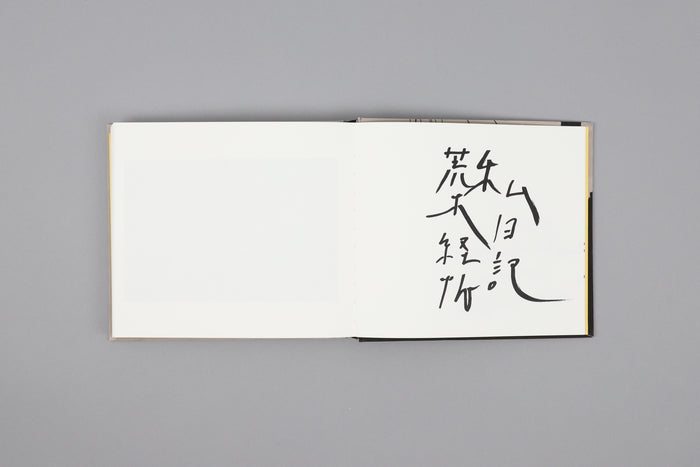 私日記
荒木経惟